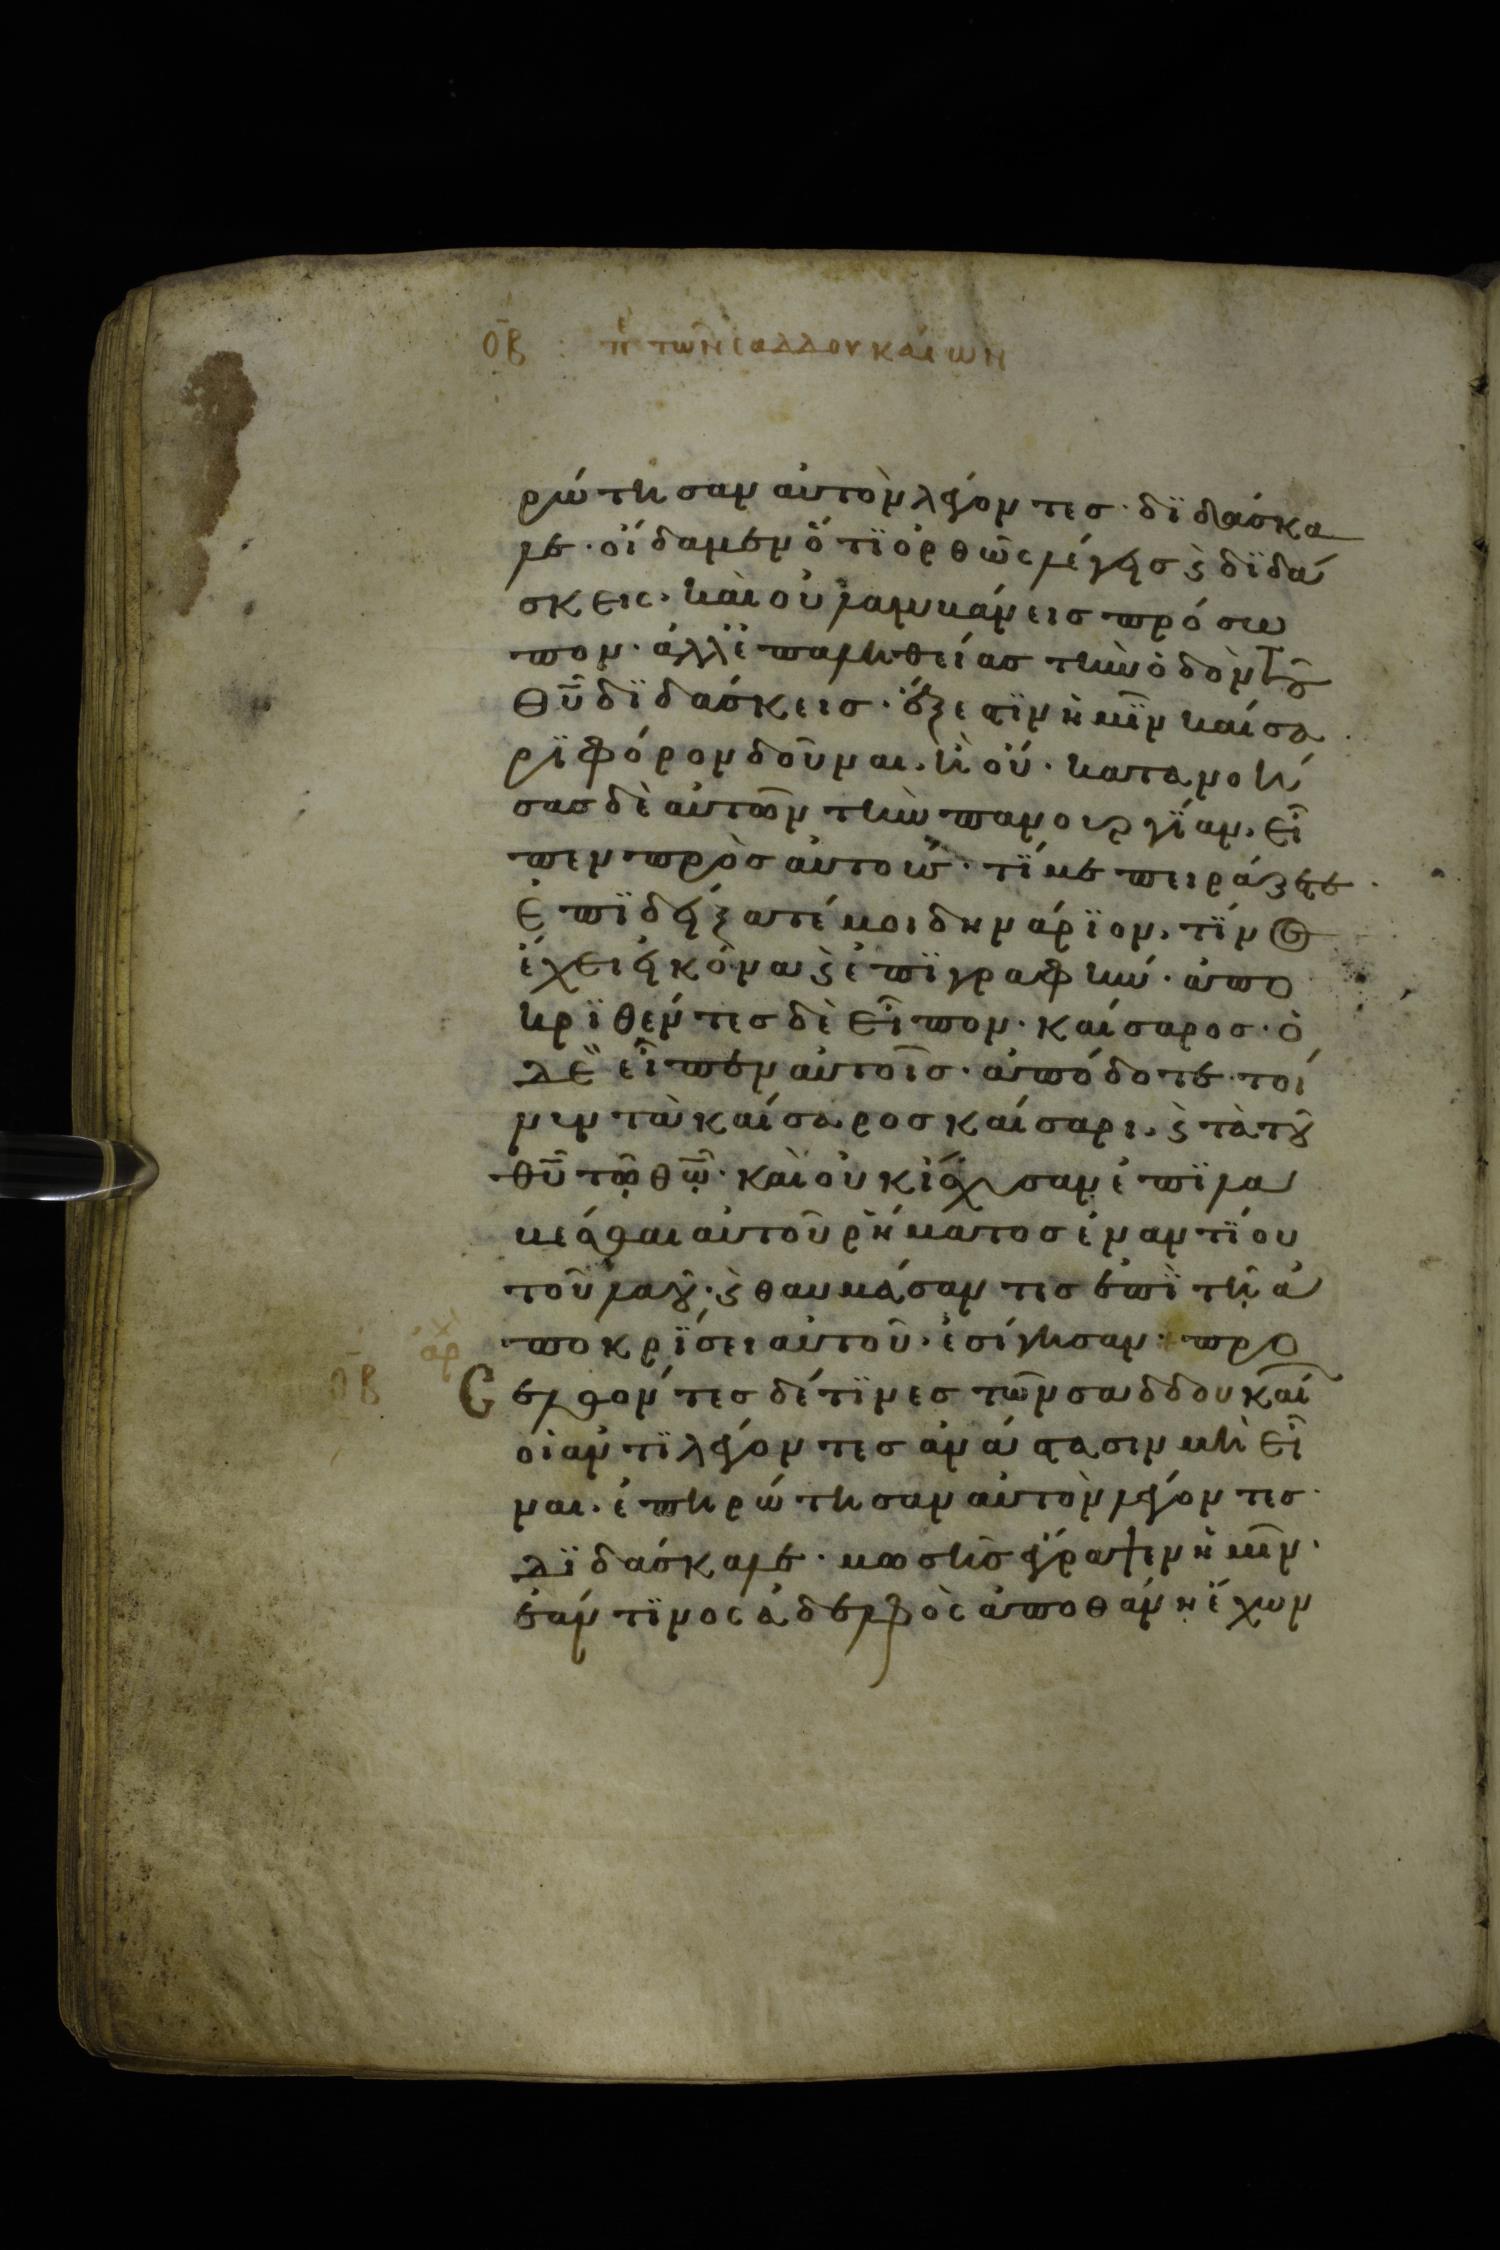 ο̅β̅ : πε̅ τῶν σαλλουκαίων
ρώτησαν αὐτὸν λέγοντες· δϊδάσκα
λε· οἴδαμεν ὅτϊ ὀρθῶς λέγεις ϗ δϊδά
σκεις· καὶ οὐ λαμμάνεις πρόσω
πον· ἀλλ' ἐπ' ἀληθείας τὴν ὁδὸν τοῦ
θῦ δϊδάσκεις· ἔξεστϊν ἡμῖν καίσα
ρϊ φόρον δοῦναι· ἢ οὔ· κατανοή
σας δὲ αὐτῶν τὴν πανουργΐαν· εἶ
πεν πρὸς αὐτούς· τΐ με πειράζετε·
ἐπϊδείξατέ μοι δηνάρϊον· τΐνος
ἔχει εἰκόνα ϗ ἐπϊγραφήν· ἀπο
κρϊθέντες δὲ εἶπον· καίσαρος· ὁ
δὲ εἶπεν αὐτοῖς· ἀπόδοτε τοί
νυν τὰ καίσαρος καίσαρι· ϗ τὰ τοῦ
θῦ τῷ θῷ· καὶ οὐκ ἴσχυσαν ἐπϊλα
βέσθαι αὐτοῦ ῥήματος ἐναντΐον
τοῦ λαοῦ· ϗ θαυμάσαντες ἐπῒ τῇ ἀ
ποκρΐσει αὐτοῦ· ἐσίγησαν· προ
ἀρχ
ο̅β̅
σελθόντες δέ τϊνες τῶν σαδδουκαί
οἱ ἀντϊλέγοντες ἀνάστασιν μὴ εἶ
ναι· ἐπηρώτησαν αὐτὸν λέγοντες·
δϊδάσκαλε· μωσῆς ἔγραψεν ἡμῖν·
ἐάν τϊνος ἀδελφὸς ἀποθάνῃ ἔχων